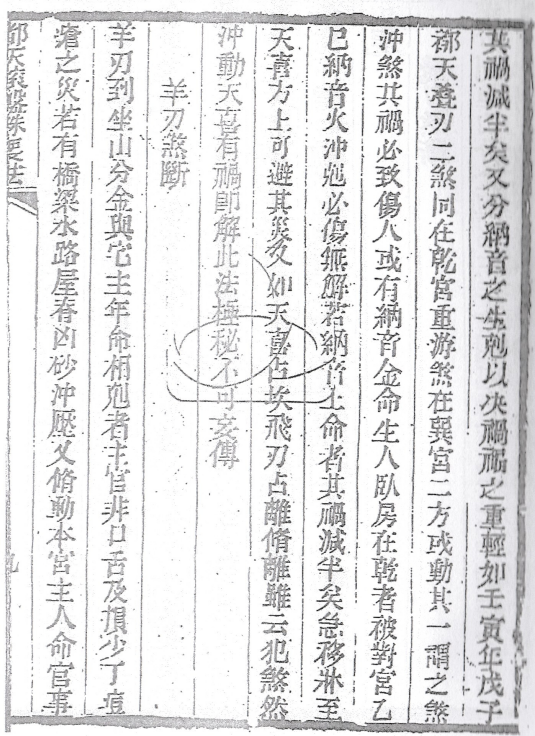 其禍減半矣又分納音之生剋以决禍福之重輕如壬寅年戊子
都天叠刃二煞同在乾宮重游煞在巽宮二方或動其一謂之煞
沖煞其禍必致傷人或有納音金命生人臥房在乾者被對宮乙
巳納音火沖剋必傷無解若納音土命者其禍減半矣急移牀至
天喜方上可避其災又如天喜占坎飛刃占離脩離雖云犯煞然
沖動天喜有禍卽解此法極秘不可妄傳
羊刃煞斷
羊刃到坐山分金與宅主年命相剋者主官非口舌及損少丁痘
瘡之災若有橋梁水路屋脊凶砂沖壓又脩動本宮主人命官事
都天
法
九